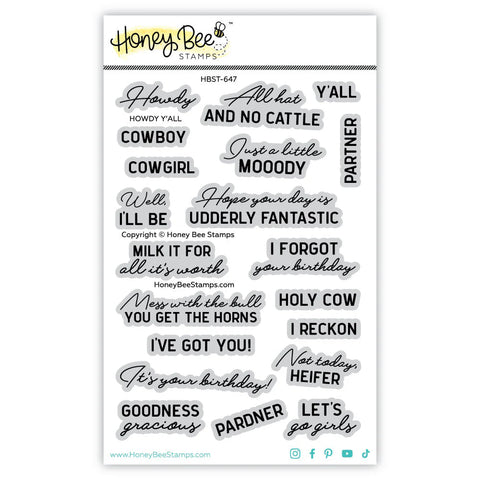 Honey Bee
STAMPS
™
HBST-647
Howdy
HOWDY Y'ALL
All hat
AND NO CATTLE
Y'ALL
COWBOY
COWGIRL
Just a little
MOOODY
PARTNER
Well,
I'LL BE
Hope your day is
UDDERLY FANTASTIC
Copyright © Honey Bee Stamps
MILK IT FOR
all it's worth
I FORGOT
your birthday
HoneyBeeStamps.com
Mess with the bull
YOU GET THE HORNS
HOLY COW
I RECKON
I'VE GOT YOU!
Not today,
HEIFER
It's your birthday!
GOODNESS
gracious
PARDNER
LET'S
go girls
www.HoneyBeeStamps.com